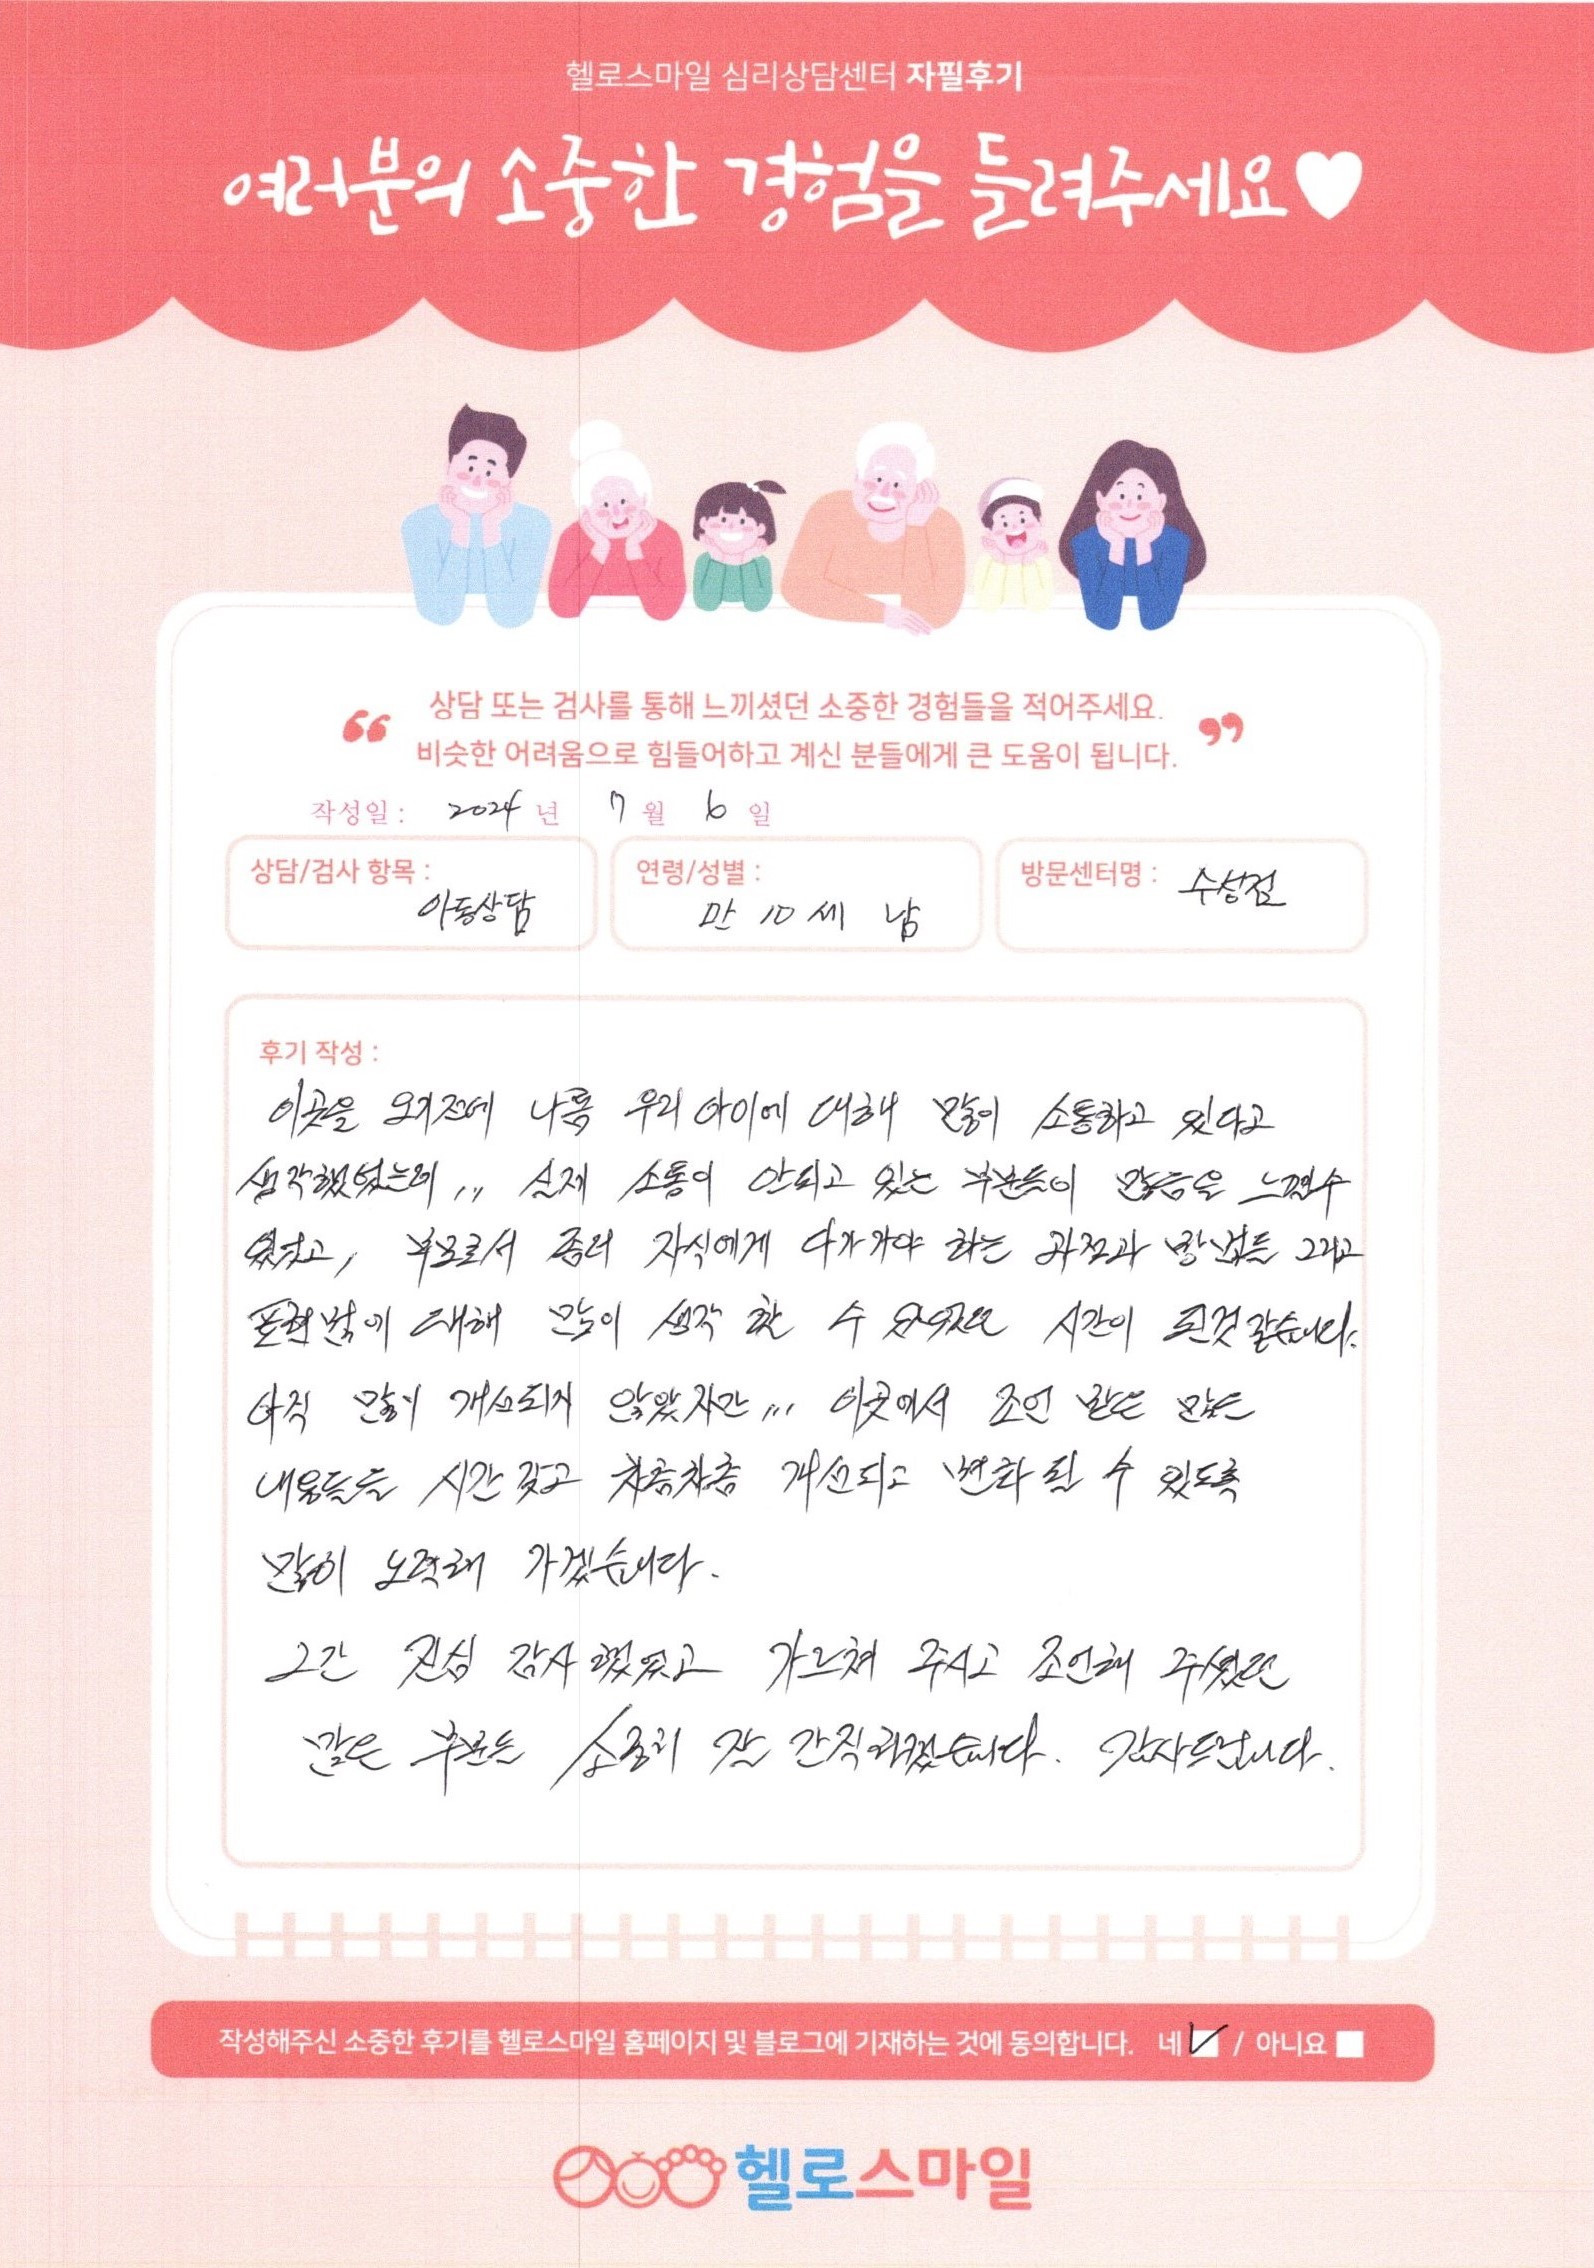 헬로스마일 심리상담센터 자필후기
여러분의 소중한 경험을 들려주세요♥
“ 상담 또는 검사를 통해 느끼셨던 소중한 경험들을 적어주세요. ”
비슷한 어려움으로 힘들어하고 계신 분들에게 큰 도움이 됩니다.
작성일 : 2024 년 7 월 6 일
상담/검사 항목 : 아동상담
연령/성별 : 만 10세 남
방문센터명 : 수성점
후기 작성 :
이곳을 오기전에 나름 우리 아이에 대해 많이 소통하고 있다고
생각했었는데,,, 실제 소통이 안되고 있는 부분들이 많음을 느낄수
있었고, 부모로서 좀더 자식에게 다가가야 하는 과정과 방법들 그리고
표현법에 대해 많이 생각 할 수 있었던 시간이 된것 같습니다.
아직 많이 개선되지 않았지만,,, 이곳에서 조언 받은 많은
내용들을 시간 갖고 차츰차츰 개선되고 변화 될 수 있도록
많이 노력해 가겠습니다.
그간 진심 감사했었고 가르쳐 주시고 조언해 주셨던
많은 부분들 소중히 잘 간직하겠습니다. 감사드립니다.
작성해주신 소중한 후기를 헬로스마일 홈페이지 및 블로그에 기재하는 것에 동의합니다. 네 ✓ / 아니요
헬로스마일